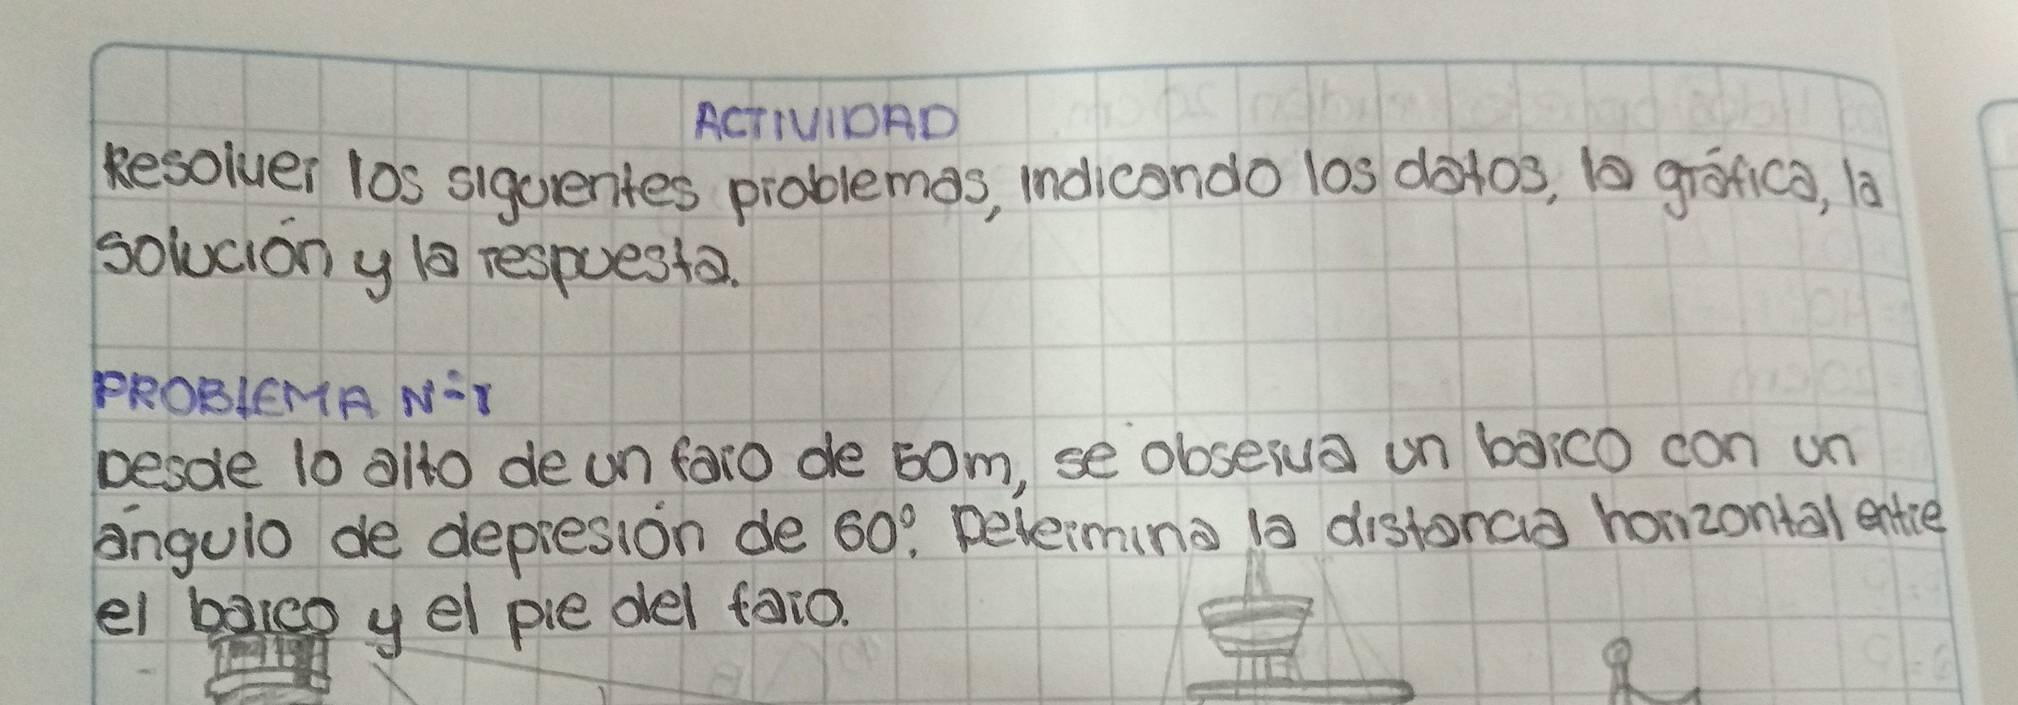 ACTIVIDAD
Resolver los siguientes problemas, indicando los datos, la gráfica, la
solución y la respuesta.
PROBLEMA N=1
Desde lo alto de un faro de 50m, se observa un barco con un
ángulo de depresión de 60°. Determina la distancia horizontal entre
el barco y el pie del faro.